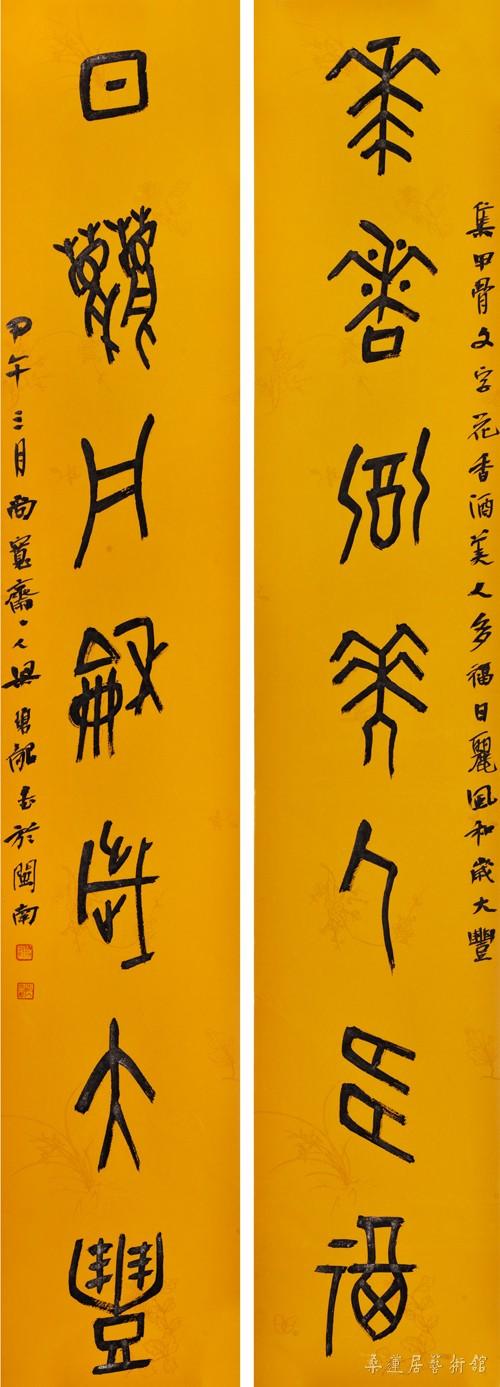 集甲骨文字花香酒美人多福日麗風和歲大豐
花香酒美人多福
日麗風和歲大豐
甲午三月尚寬齋主人書於閩南
桑蓮居藝術館